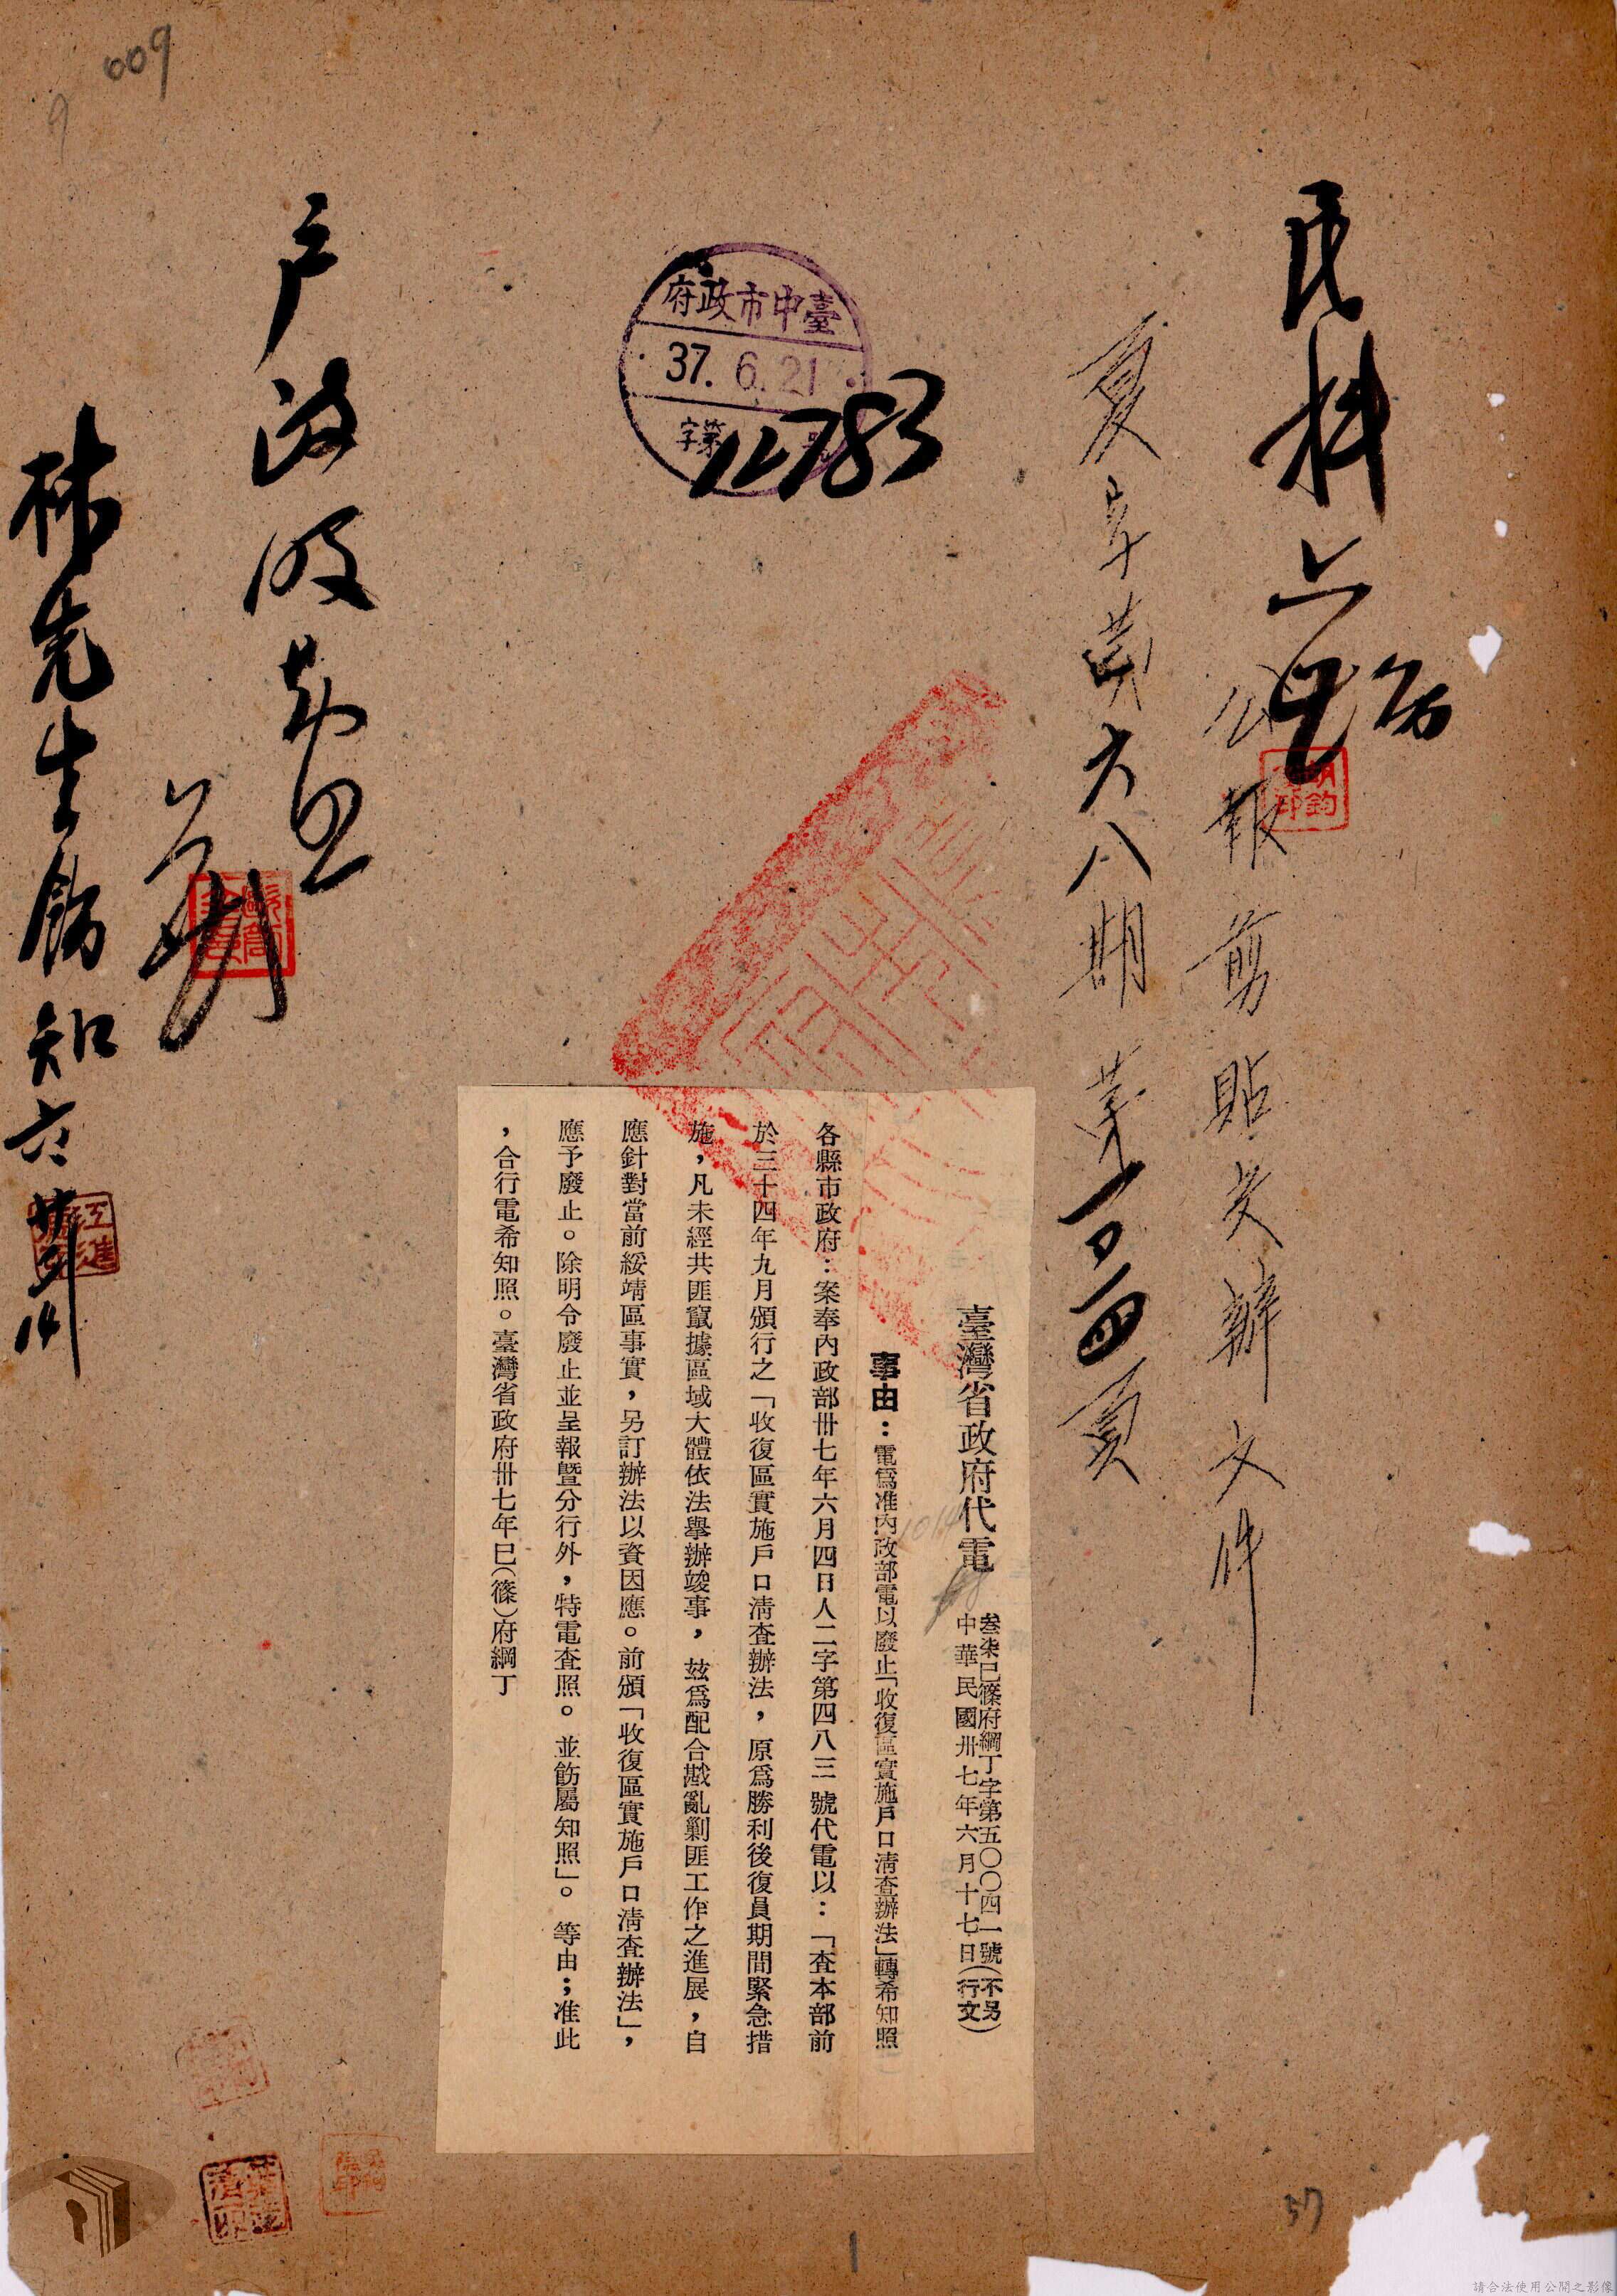 009
9
民科
公報剪貼交辦文件
夏字第六八期 第一〇一四頁
臺中市政府
37. 6. 21
字第 號
12783
臺灣省政府代電
叁柒巳篠府綱丁字第五〇〇四一號(不另行文)
中華民國卅七年六月十七日
事由:電爲准內政部電以廢止「收復區實施戶口淸查辦法」轉希知照
各縣市政府:案奉內政部卅七年六月四日人二字第四八三號代電以:「查本部前
於三十四年九月頒行之「收復區實施戶口淸查辦法,原爲勝利後復員期間緊急措
施,凡未經共匪竄據區域大體依法舉辦竣事,玆爲配合戡亂剿匪工作之進展,自
應針對當前綏靖區事實,另訂辦法以資因應。前頒「收復區實施戶口淸查辦法」,
應予廢止。除明令廢止並呈報暨分行外,特電查照。並飭屬知照」。等由;准此
,合行電希知照。臺灣省政府卅七年巳(篠)府綱丁
戶政股
林先生飭知
57
1
請合法使用公開之影像